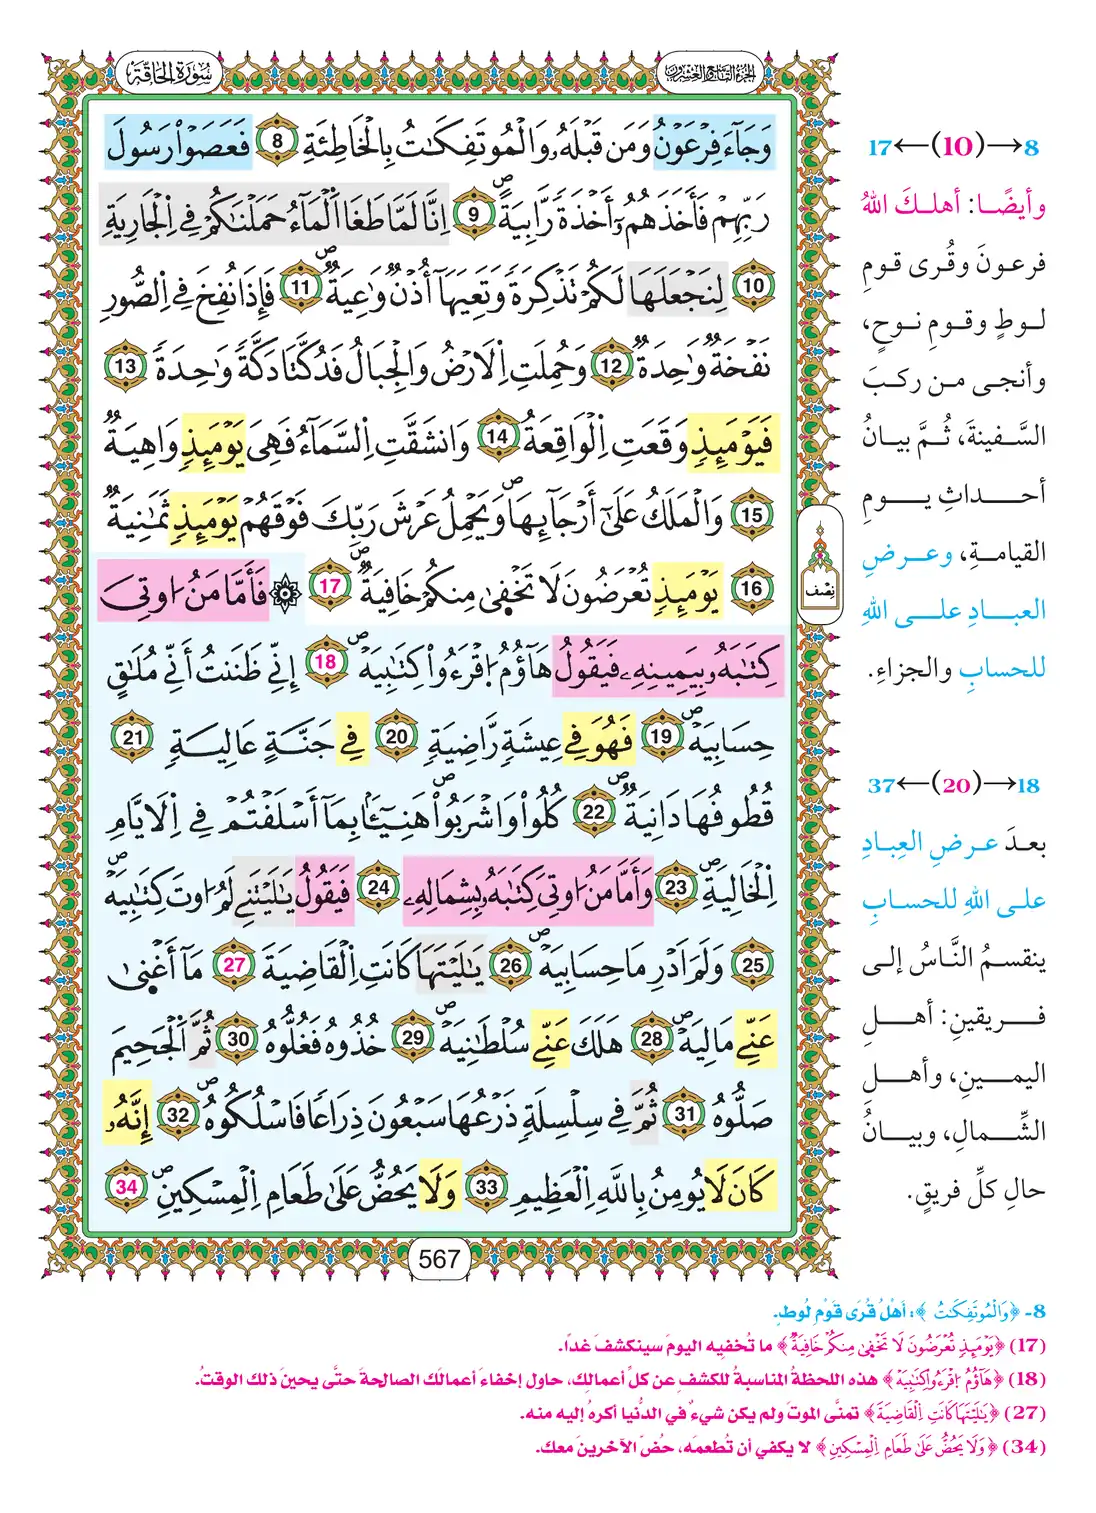 سُورَةُ الحَاقَّةِ
الجزء التاسع والعشرون
وَجَآءَ فِرْعَوْنُ وَمَن قَبْلَهُۥ وَالْمُوتَفِكَٰتُ بِالْخَاطِئَةِ 8 فَعَصَوْاْ رَسُولَ
رَبِّهِمْ فَأَخَذَهُمُۥٓ أَخْذَةٗ رَّابِيَةًۖ 9 اِنَّا لَمَّا طَغَا اَ۬لْمَآءُ حَمَلْنَٰكُمْ فِے اِ۬لْجَارِيَةِ
10 لِنَجْعَلَهَا لَكُمْ تَذْكِرَةٗ وَتَعِيَهَآ أُذْنٞ وَٰعِيَةٞۖ 11 فَإِذَا نُفِخَ فِے اِ۬لصُّورِ
نَفْخَةٞ وَٰحِدَةٞ 12 وَحُمِلَتِ اِ۬لَارْضُ وَالْجِبَالُ فَدُكَّتَا دَكَّةٗ وَٰحِدَةٗ 13
فَيَوْمَئِذٖ وَقَعَتِ اِ۬لْوَاقِعَةُ 14 وَانشَقَّتِ اِ۬لسَّمَآءُ فَهِىَ يَوْمَئِذٖ وَاهِيَةٞ
15 وَالْمَلَكُ عَلَىٰٓ أَرْجَآئِهَاۖ وَيَحْمِلُ عَرْشَ رَبِّكَ فَوْقَهُمْ يَوْمَئِذٖ ثَمَٰنِيَةٞ
16 يَوْمَئِذٖ تُعْرَضُونَ لَا تَخْفَىٰ مِنكُمْ خَافِيَةٞۖ 17 ۞ فَأَمَّا مَنُ ا۟وتِىَ
كِتَٰبَهُۥ بِيَمِينِهِۦ فَيَقُولُ هَآؤُمُ اُ۪قْرَءُواْ كِتَٰبِيَهْۖ 18 إِنِّے ظَنَنتُ أَنِّے مُلَٰقٍ
حِسَابِيَهْۖ 19 فَهُوَ فِے عِيشَةٖ رَّاضِيَةٖ 20 فِے جَنَّةٍ عَالِيَةٖ 21
قُطُوفُهَا دَانِيَةٞۖ 22 كُلُواْ وَاشْرَبُواْ هَنِيٓـٔاَۢ بِمَآ أَسْلَفْتُمْ فِے اِ۬لَايَّامِ
اِ۬لْخَالِيَةِۖ 23 وَأَمَّا مَنُ ا۟وتِىَ كِتَٰبَهُۥ بِشِمَالِهِۦ 24 فَيَقُولُ يَٰلَيْتَنِے لَمُ ا۟وتَ كِتَٰبِيَهْۖ
25 وَلَمَ اَدْرِ مَا حِسَابِيَهْۖ 26 يَٰلَيْتَهَا كَانَتِ اِ۬لْقَاضِيَةَ 27 مَآ أَغْنَىٰ
عَنِّے مَالِيَهْۖ 28 هَلَكَ عَنِّے سُلْطَٰنِيَهْۖ 29 خُذُوهُ فَغُلُّوهُ 30 ثُمَّ اَ۬لْجَحِيمَ
صَلُّوهُ 31 ثُمَّ فِے سِلْسِلَةٖ ذَرْعُهَا سَبْعُونَ ذِرَاعاٗ فَاسْلُكُوهُۖ 32 إِنَّهُۥ
كَانَ لَا يُومِنُ بِاللَّهِ اِ۬لْعَظِيمِ 33 وَلَا يَحُضُّ عَلَىٰ طَعَامِ اِ۬لْمِسْكِينِۖ 34
نصف
567
8→(10)←17
وأيضًا: أهلكَ اللهُ
فرعونَ وقُرى قومِ
لوطٍ وقومِ نوحٍ،
وأنجى من ركبَ
السَّفينةَ، ثُمَّ بيانُ
أحداثِ يومِ
القيامةِ، وعرضِ
العبادِ على اللهِ
للحسابِ والجزاءِ.
18→(20)←37
بعدَ عرضِ العِبادِ
على اللهِ للحسابِ
ينقسمُ النَّاسُ إلى
فريقينِ: أهلِ
اليمينِ، وأهلِ
الشِّمالِ، وبيانُ
حالِ كلِّ فريقٍ.
8- ﴿وَالْمُوتَفِكَٰتُ﴾: أَهْلُ قُرَى قَوْمِ لُوطٍ.
(17) ﴿يَوْمَئِذٖ تُعْرَضُونَ لَا تَخْفَىٰ مِنكُمْ خَافِيَةٞ﴾ ما تُخفيه اليومَ سينكشفُ غداً.
(18) ﴿هَآؤُمُ اُ۪قْرَءُواْ كِتَٰبِيَهْ﴾ هذه اللحظةُ المناسبةُ للكشفِ عن كلِّ أعمالِك، حاول إخفاءَ أعمالكَ الصالحةَ حتَّى يحينَ ذلك الوقتُ.
(27) ﴿يَٰلَيْتَهَا كَانَتِ اِ۬لْقَاضِيَةَ﴾ تمنَّى الموتَ ولم يكن شيءٌ في الدُّنيا أكرهُ إليه منه.
(34) ﴿وَلَا يَحُضُّ عَلَىٰ طَعَامِ اِ۬لْمِسْكِينِ﴾ لا يكفي أن تُطعمَه، حُضّ الآخرينَ معك.